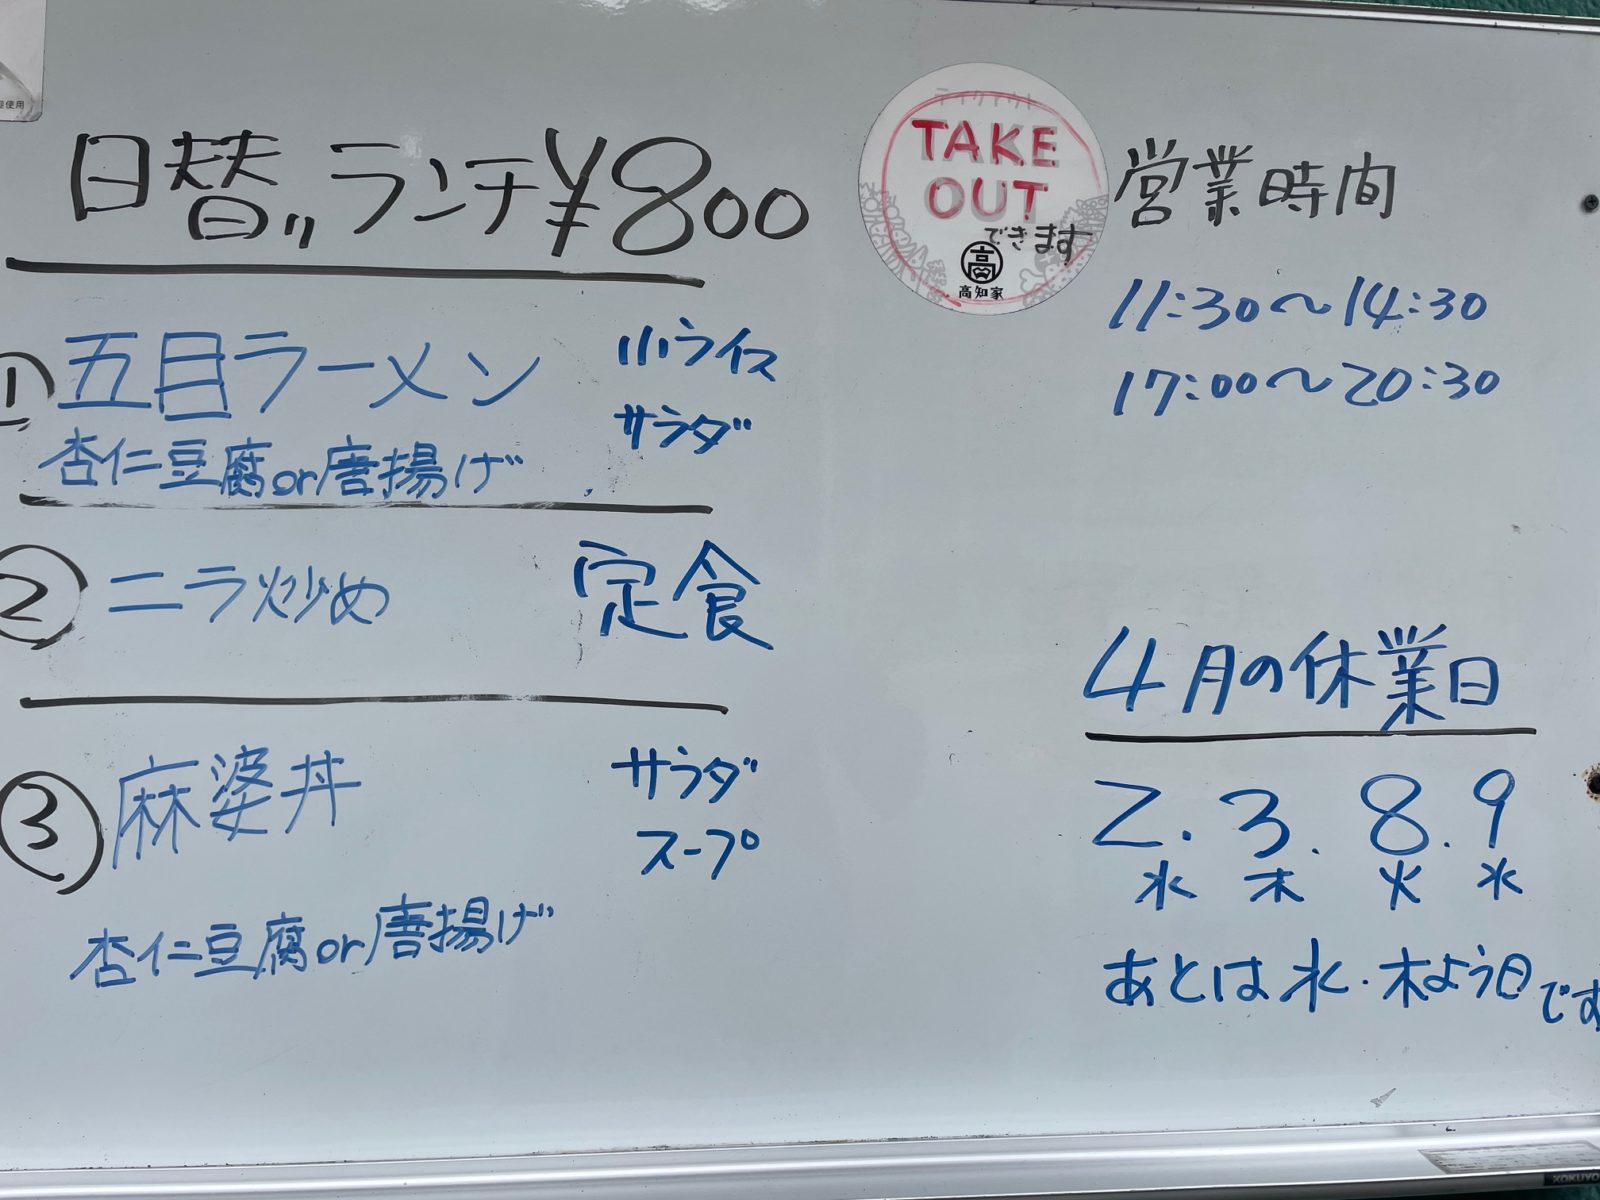 日替〃ランチ¥800
① 五目ラーメン 小ライス
サラダ
杏仁豆腐or唐揚げ
② ニラ炒め 定食
③ 麻婆丼 サラダ
スープ
杏仁豆腐or唐揚げ
テイクアウト
TAKE
OUT
できます
高
高知家
営業時間
11:30〜14:30
17:00〜20:30
4月の休業日
2.3.8.9
水 木 火 水
あとは水・木よう日です
KOKUYO